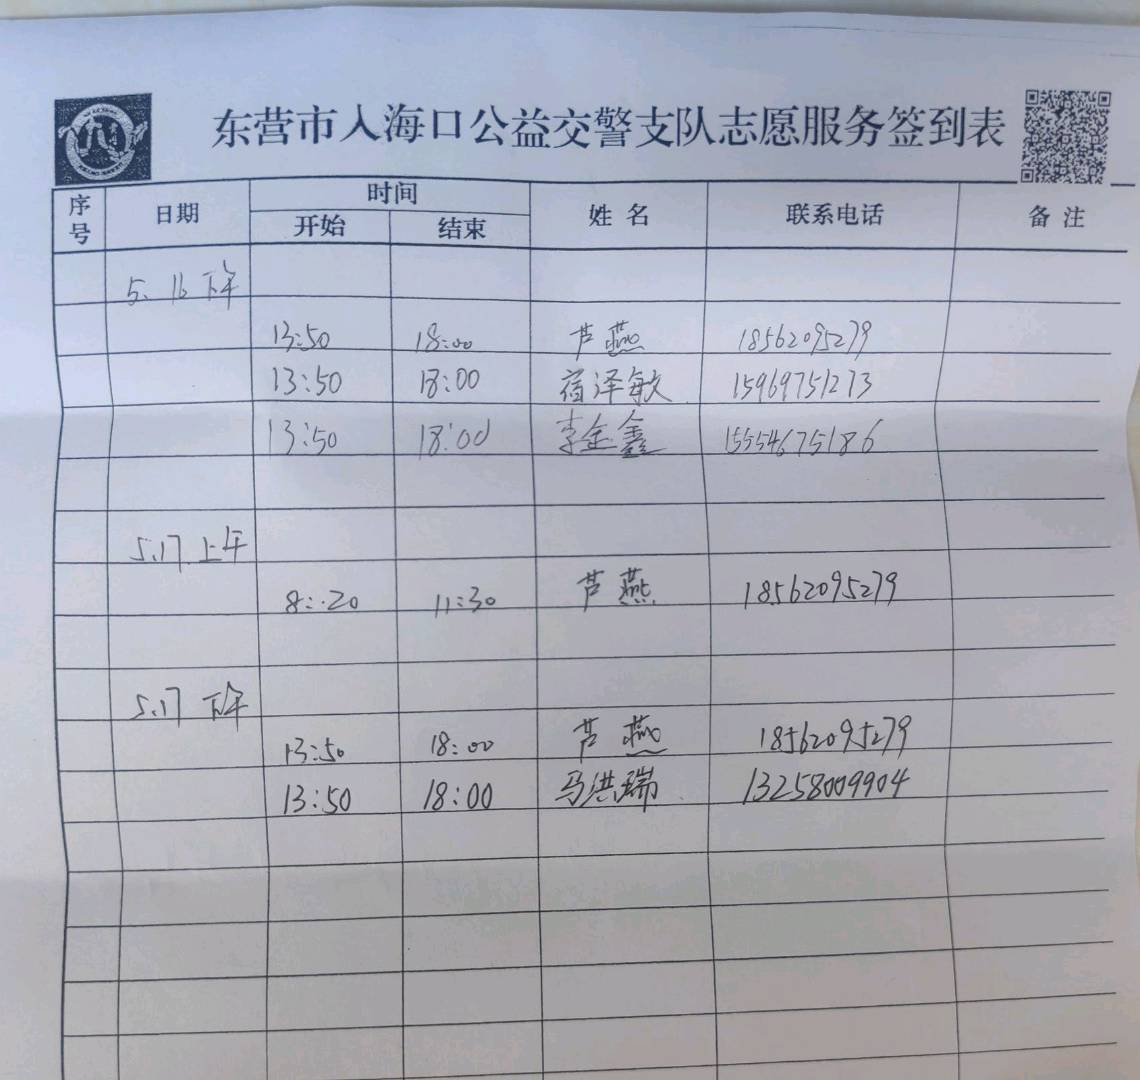 东营市入海口公益交警支队志愿服务签到表
序号 日期 时间 开始 结束 姓名 联系电话 备注
5.16 下午
13:50 18:00 芦燕 18562095279
13:50 18:00 宿泽敏 15969751273
13:50 18:00 李金鑫 15554675186
5.17 上午
8:20 11:30 芦燕 18562095279
5.17 下午
13:50 18:00 芦燕 18562095279
13:50 18:00 马洪瑞 13258009904